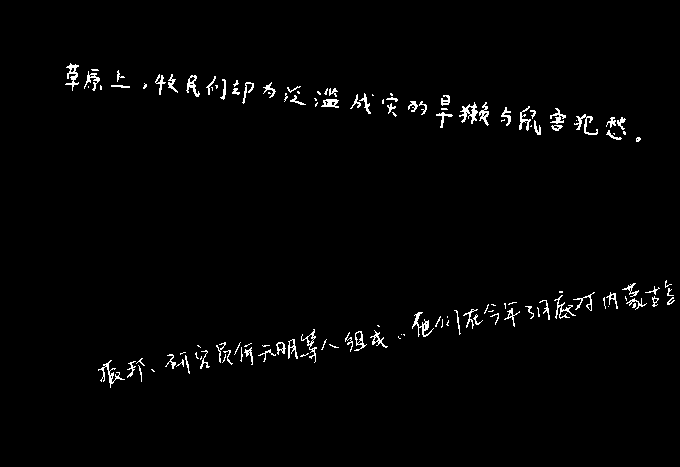 草原上，牧民们却为泛滥成灾的旱獭与鼠害犯愁。
振邦、研究员何天明等人组成。他们在今年3月底对内蒙古